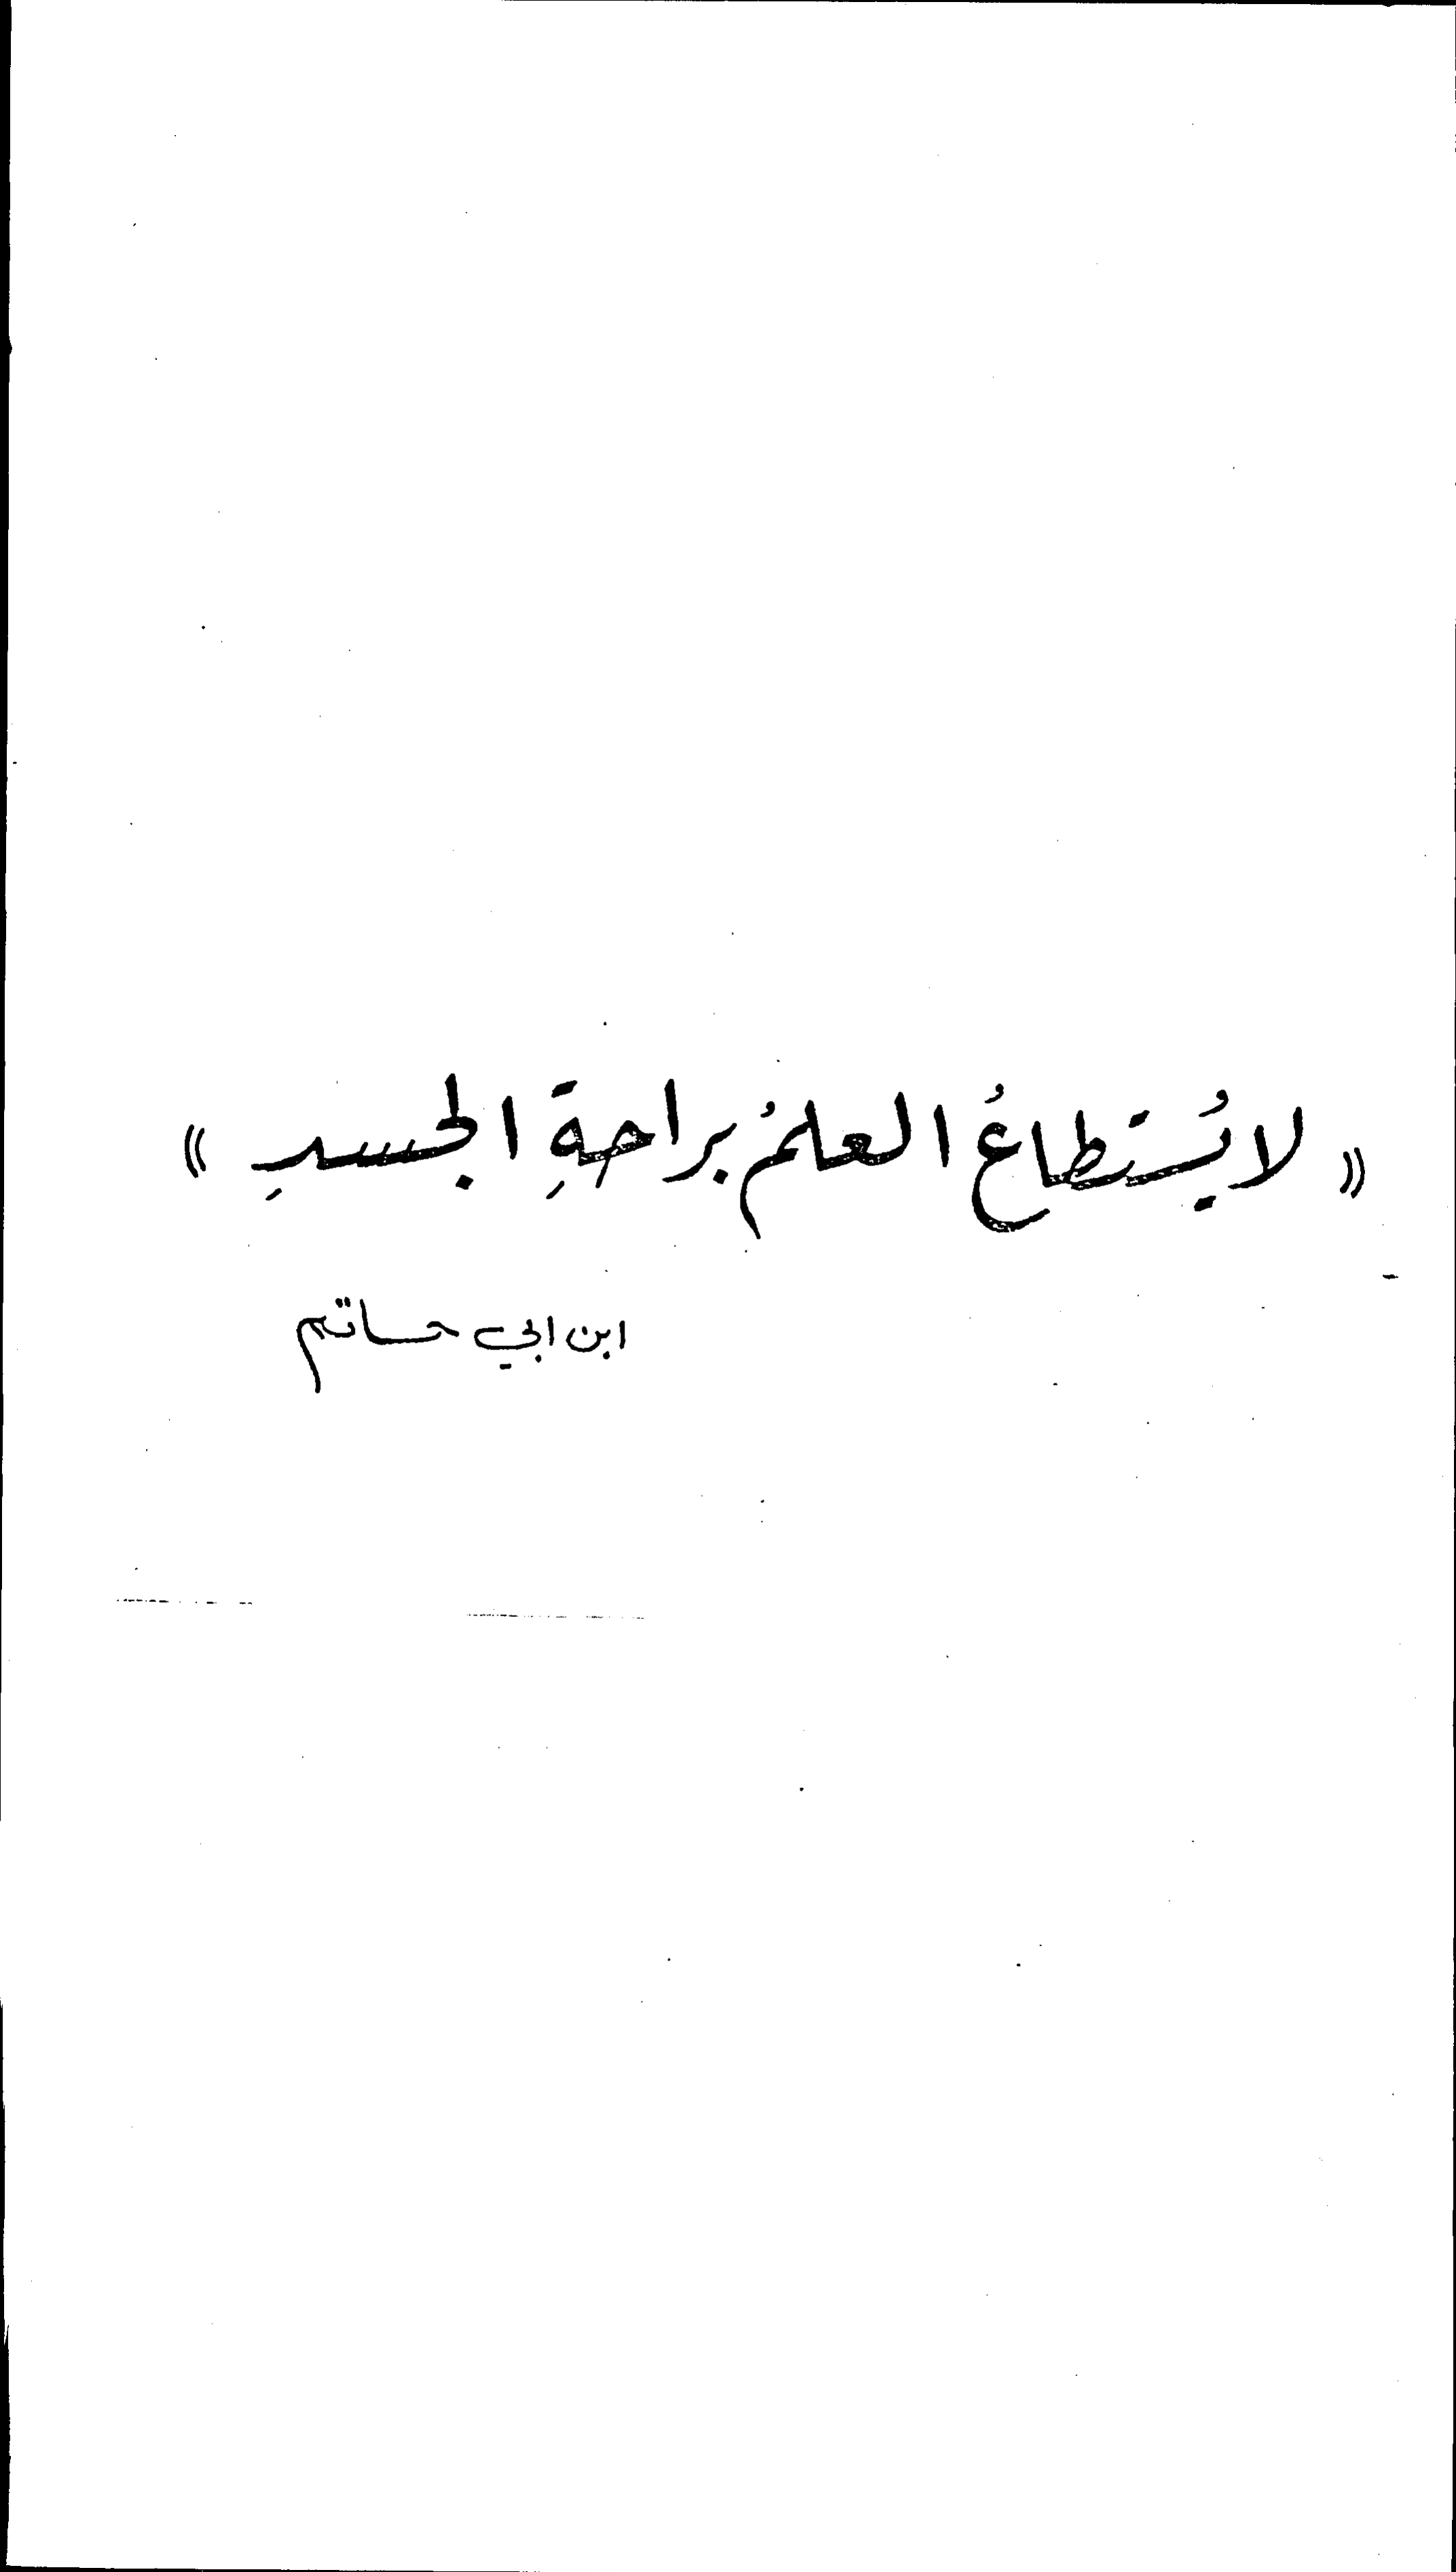 « لا يُستطاعُ العلمُ براحةِ الجسدِ »
ابن ابي حاتم